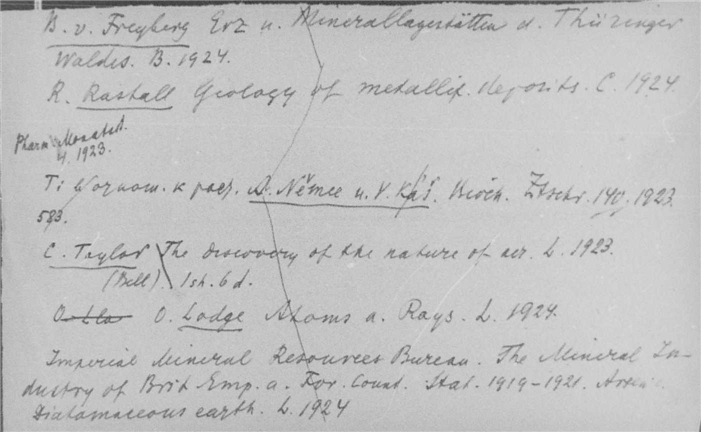 B. v. Freyberg Erz u. Minerallagerstätten d. Thüringer
Waldes. B. 1924.
R. Rastall Geology of metallif. deposits. C. 1924.
Pharm. Monatsh.
4. 1923.
Ti A. Němec u. V. Káš. Bioch. Ztschr. 140. 1923.
583.
C. Taylor The discovery of the nature of air. L. 1923.
(Bell) 1 sh. 6 d.
O. Lodge Atoms a. Rays. L. 1924.
Imperial Mineral Resources Bureau. The Mineral In-
dustry of Brit. Emp. a. For. Count. Stat. 1919-1921.
Diatomaceous earth. L. 1924